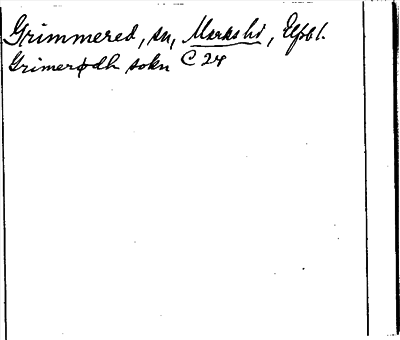 Grimmered, sn, Marks hd, Elfsbl.
Grimerødh sokn C 24